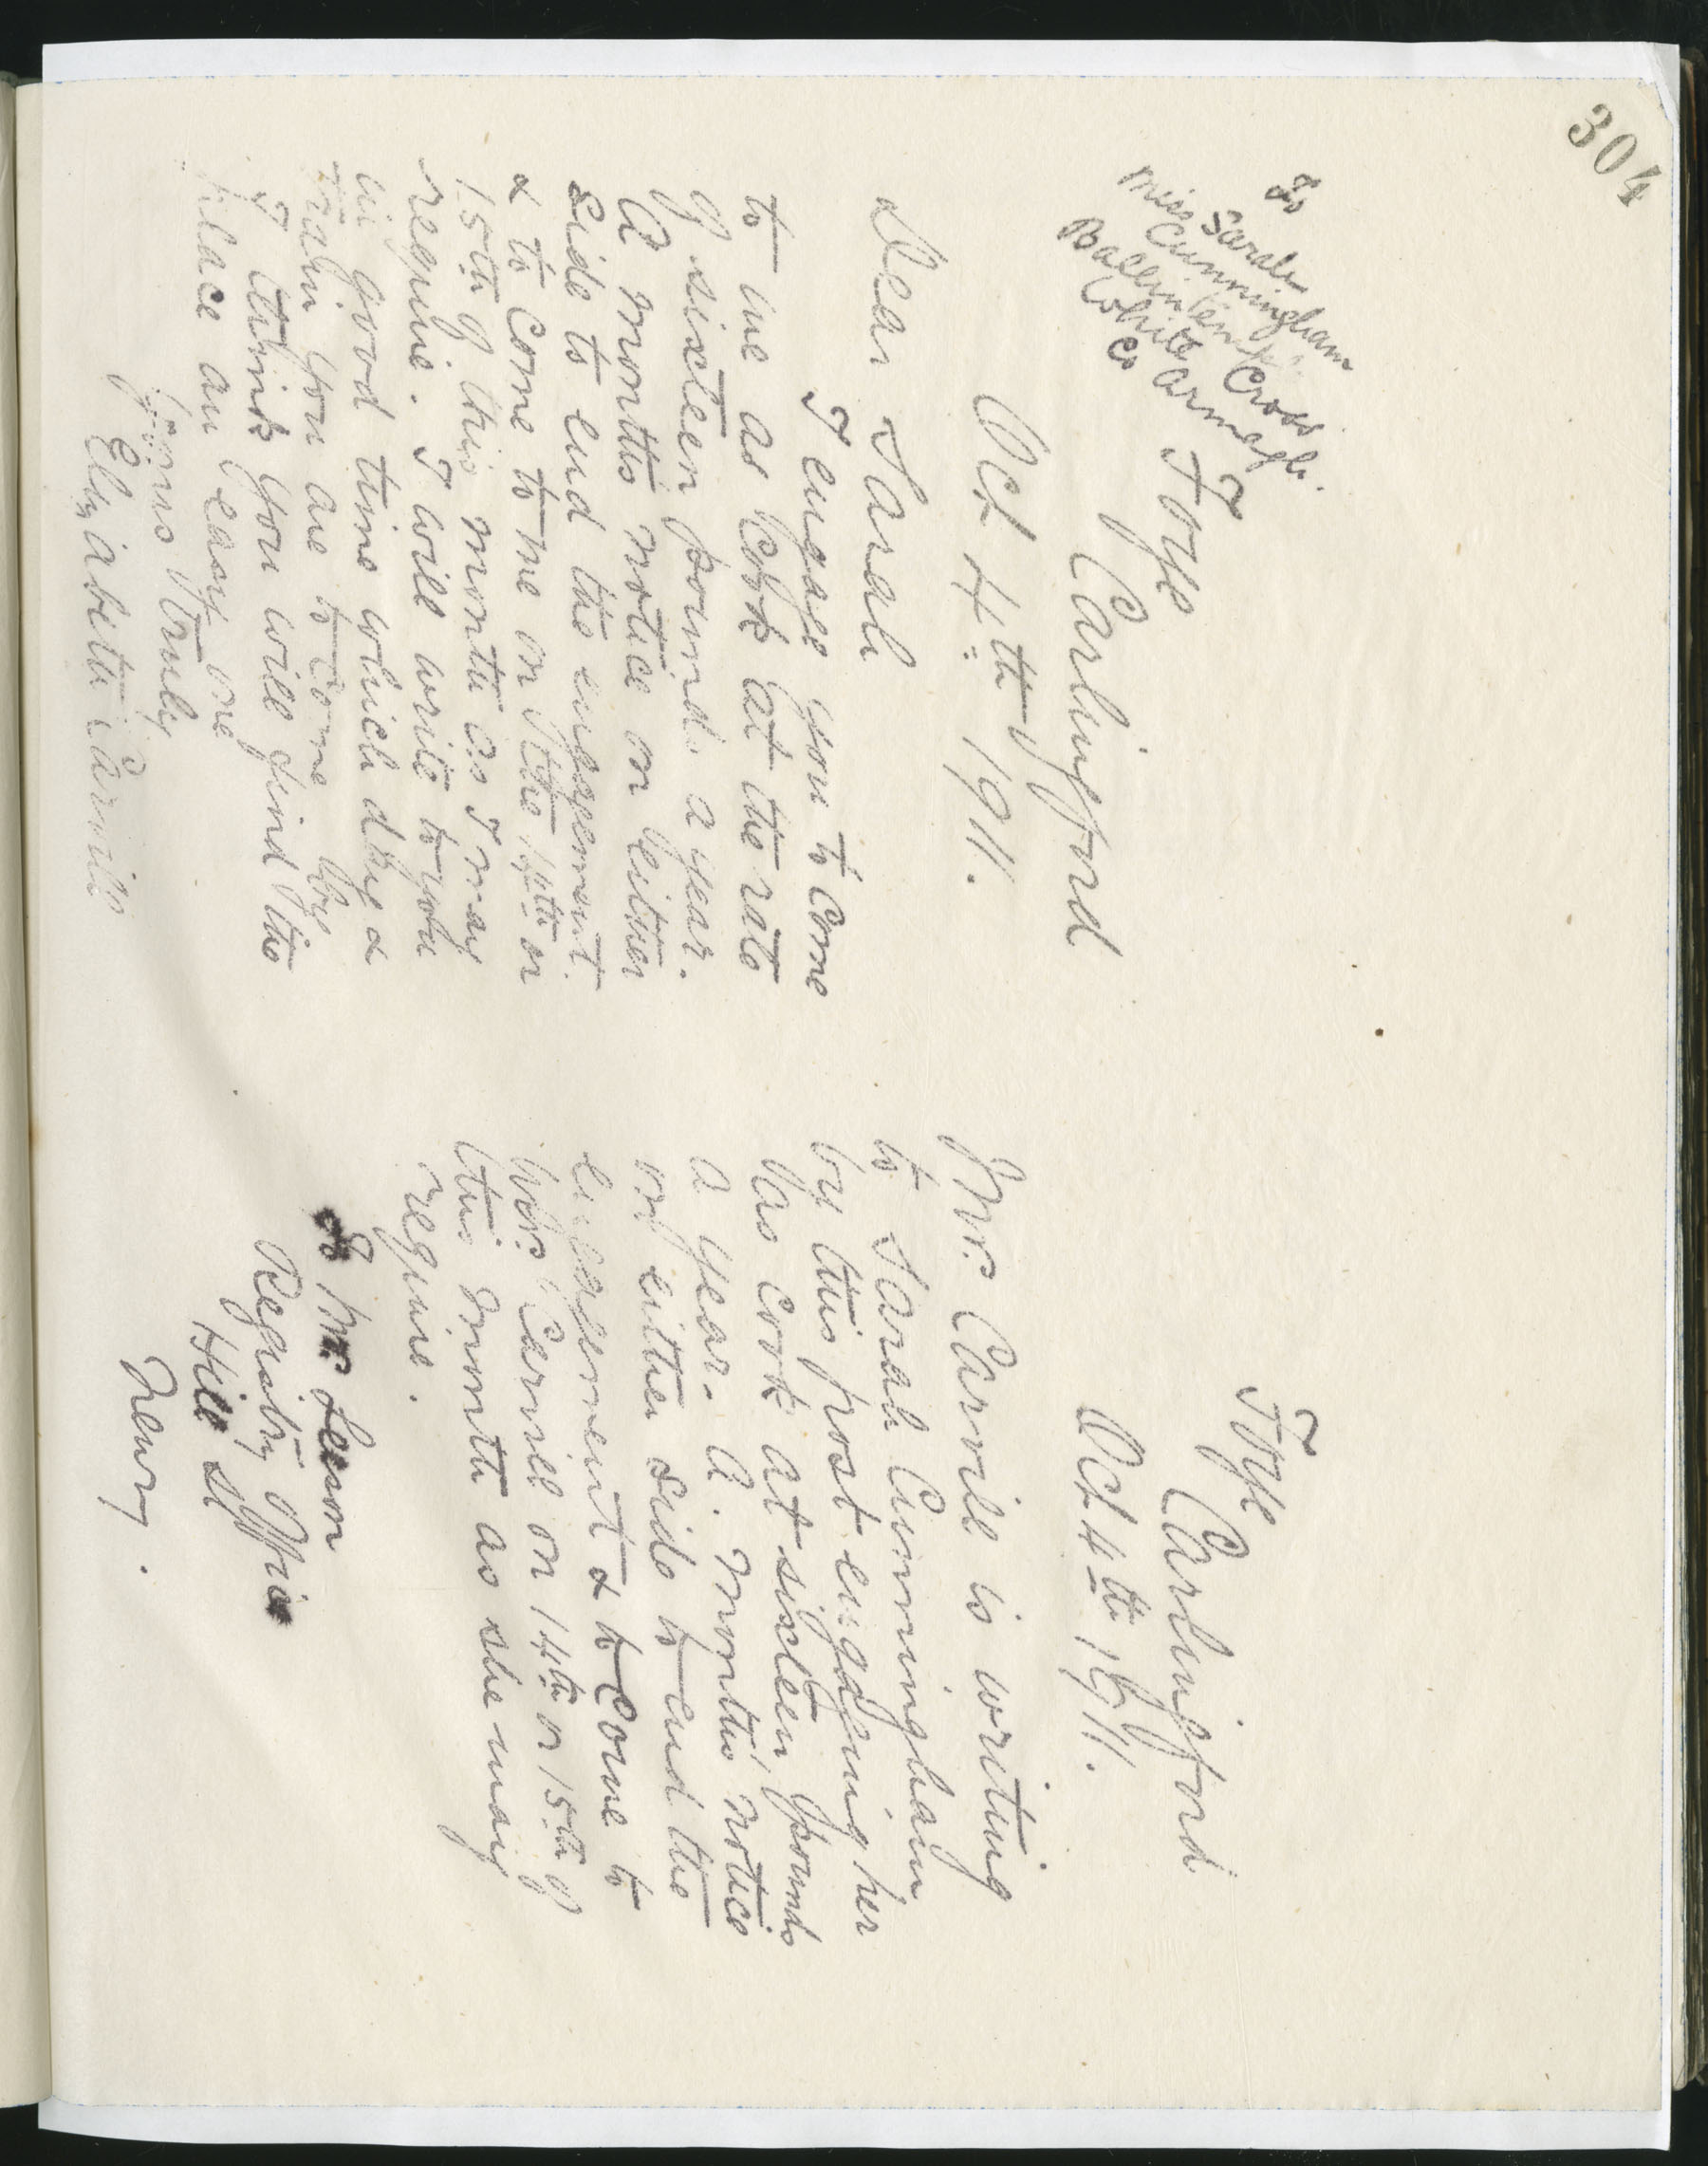 304
To
Sarah
Miss Cunningham
Ballintemple
White Cross
Co Armagh.
Foye
Carlingford
Oct 4th 1911.
Dear Sarah
I engage you to come
to me as Cook at the rate
of sixteen pounds a year.
A months notice on either
side to end the engagement.
& to come to me on the 14th or
15th of this month as I may
require. I will write to you
in good time which day &
train you are to come by
I think you will find the
place an easy one
Yours truly
Elizabeth Carvill
Foye
Carlingford
Oct 4th 1911.
Mrs. Carvill is writing
to Sarah Cunningham
by this post engaging her
as cook at sixteen pounds
a year. A. months' notice
on either side to end the
engagement & to come to
Mrs. Carvill on 14th or 15th of
this month as she may
require.
To Mr.
Registry Office
Hill St
Newry.